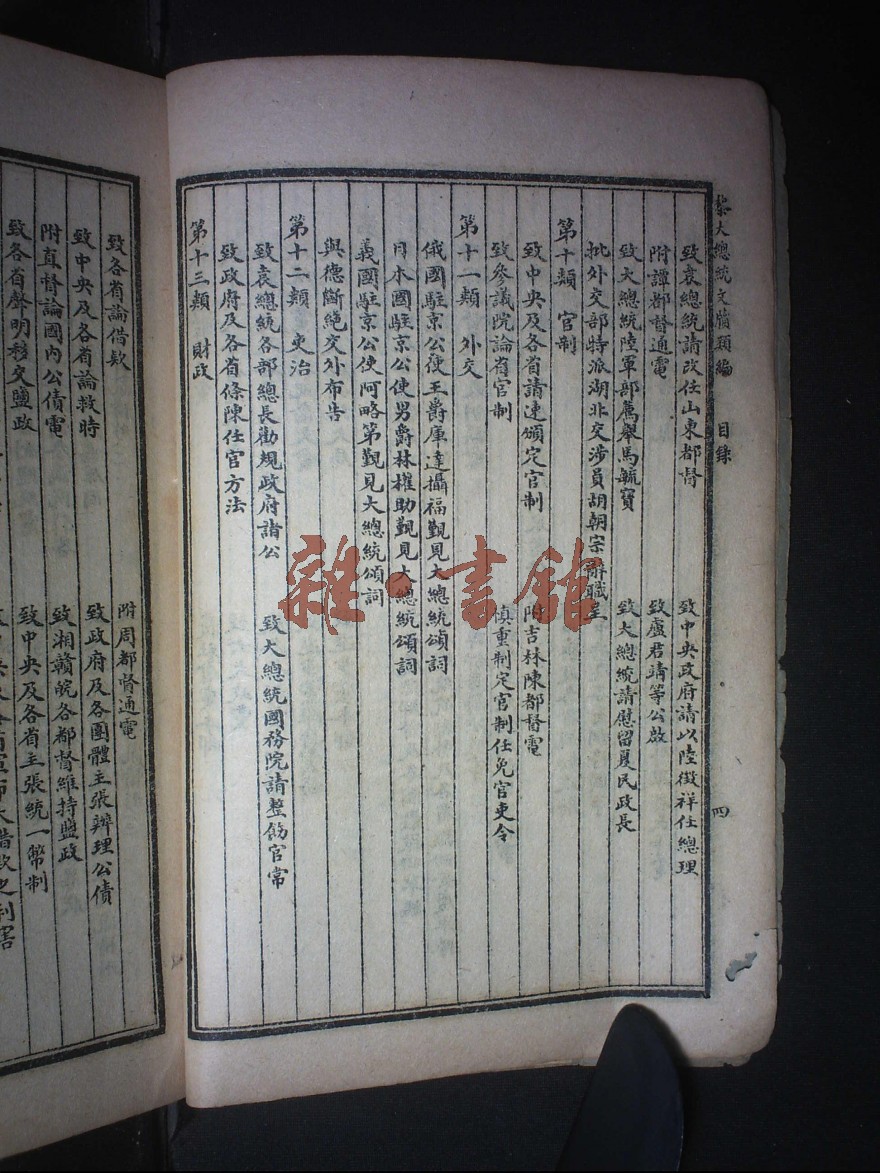 黎大總統文牘類編 目錄 四
致袁總統請改任山東都督 致中央政府請以陸徵祥任總理
附譚都督通電 致盧君靖等公啟
致大總統陸軍部薦舉馬毓寶 致大總統請慰留夏民政長
批外交部特派湖北交涉員胡朝宗辭職呈
第十類 官制
致中央及各省請速頒定官制 附吉林陳都督電
致參議院論省官制 慎重制定官制任免官吏令
第十一類 外交
俄國駐京公使王爵庫達攝福覲見大總統頌詞
日本國駐京公使男爵林權助覲見大總統頌詞
義國駐京公使阿略第覲見大總統頌詞
與德斷絕交外布告
第十二類 吏治
致袁總統各部總長勸規政府諸公 致大總統國務院請整飭官常
致政府及各省條陳任官方法
第十三類 財政
致各省論借款 附周都督通電
致中央及各省論救時 致政府及各團體主張辦理公債
附直督論國內公債電 致湘贛皖各都督維持鹽政
致各省聲明移交鹽政 致中央及各省主張統一幣制
大借款之利害
雜·書館